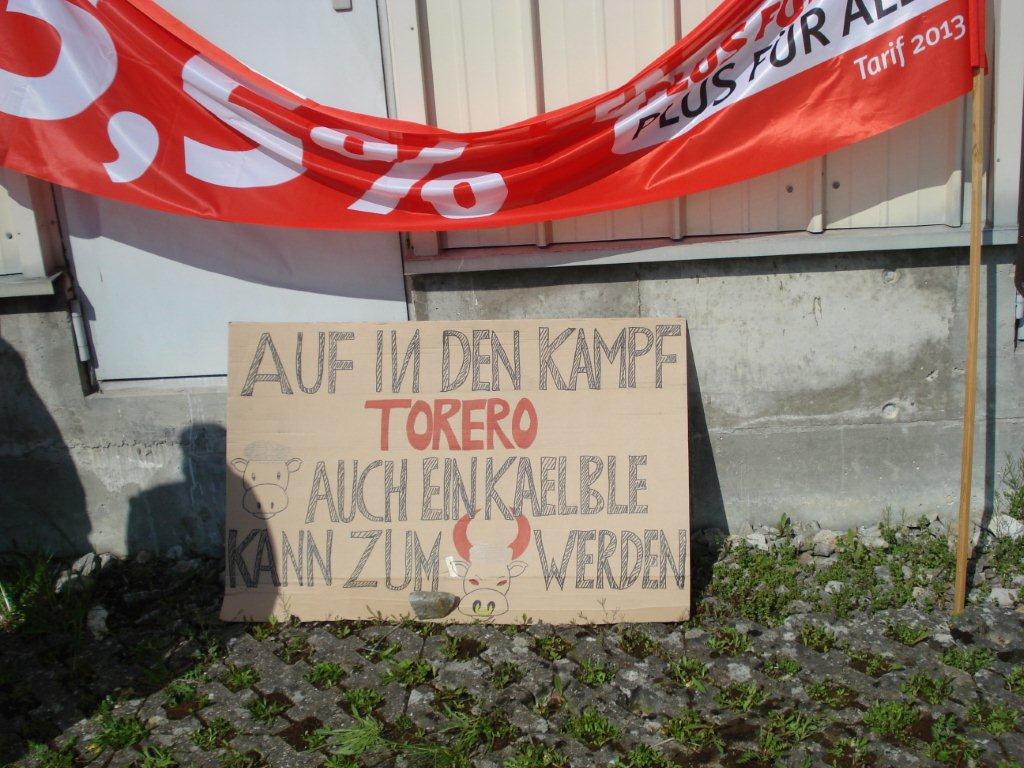 ,5%
PLUS FÜR
PLUS FÜR ALLE
Tarif 2013
AUF IN DEN KAMPF
TORERO
AUCH EIN KAELBLE
KANN ZUM WERDEN